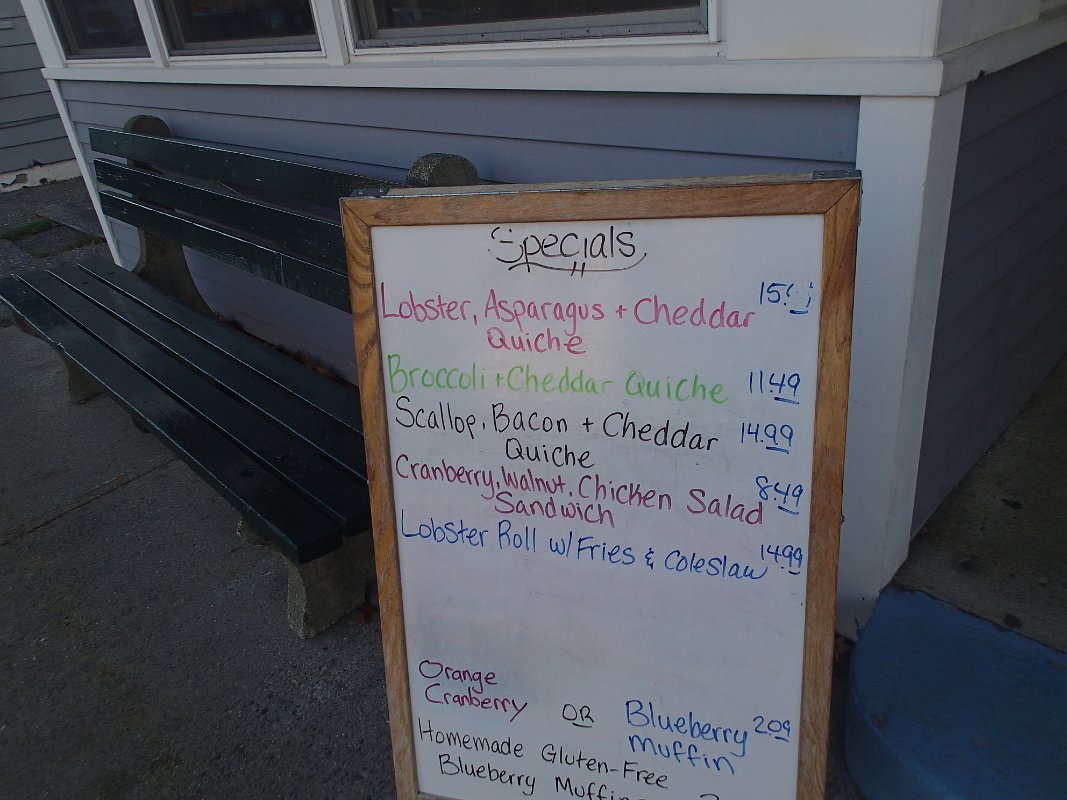 Specials
Lobster, Asparagus + Cheddar
Quiche
Broccoli + Cheddar Quiche 11.49
Scallop, Bacon + Cheddar 14.99
Quiche
Cranberry, Walnut, Chicken Salad 8.49
Sandwich
Lobster Roll w/Fries & Coleslaw 14.99
Orange
Cranberry OR Blueberry 2.09
Muffin
Homemade Gluten-Free
Blueberry